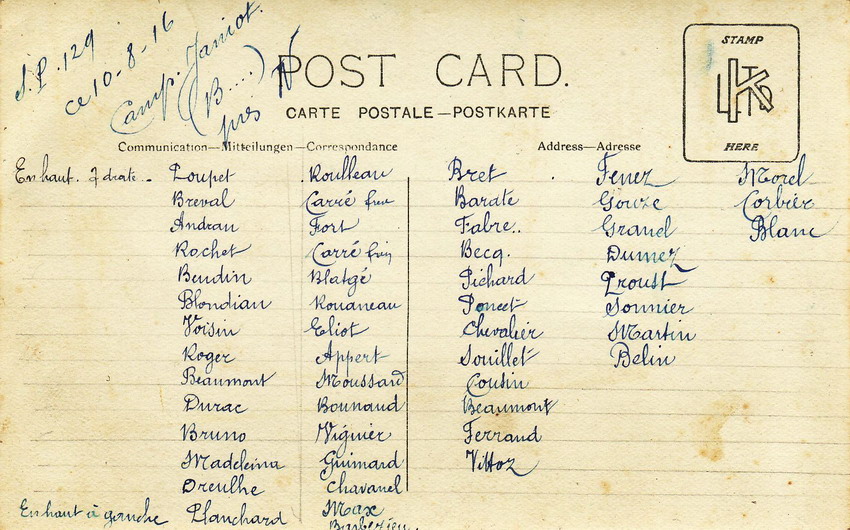 S.P. 129
ce 10-8-16
Camp. Janiot.
(B....)
près
POST CARD.
CARTE POSTALE—POSTKARTE
STAMP
HERE
Communication—Mitteilungen—Correspondance
Address—Adresse
En haut. à drate. Loupet Roulleau Bret Fenez Morel
Breval Carré Barate Gouze Corbier
Andrau Fort Fabre.. Granel Blanc
Rochet Carré Becq. Dumez
Baudin Blatgé Pichard Proust
Blondian Rouaneau Poncet Sonnier
Voisin Eliot Chevalier Martin
Roger Appert Souillet Belin
Beaumont Moussard Cousin
Durac Bounaud Beaumont
Bruno Viguier Ferrand
Madeleina Guimard Vittoz
Dreulhe Chavanel
En haut à gauche Planchard Max
Barbezieu